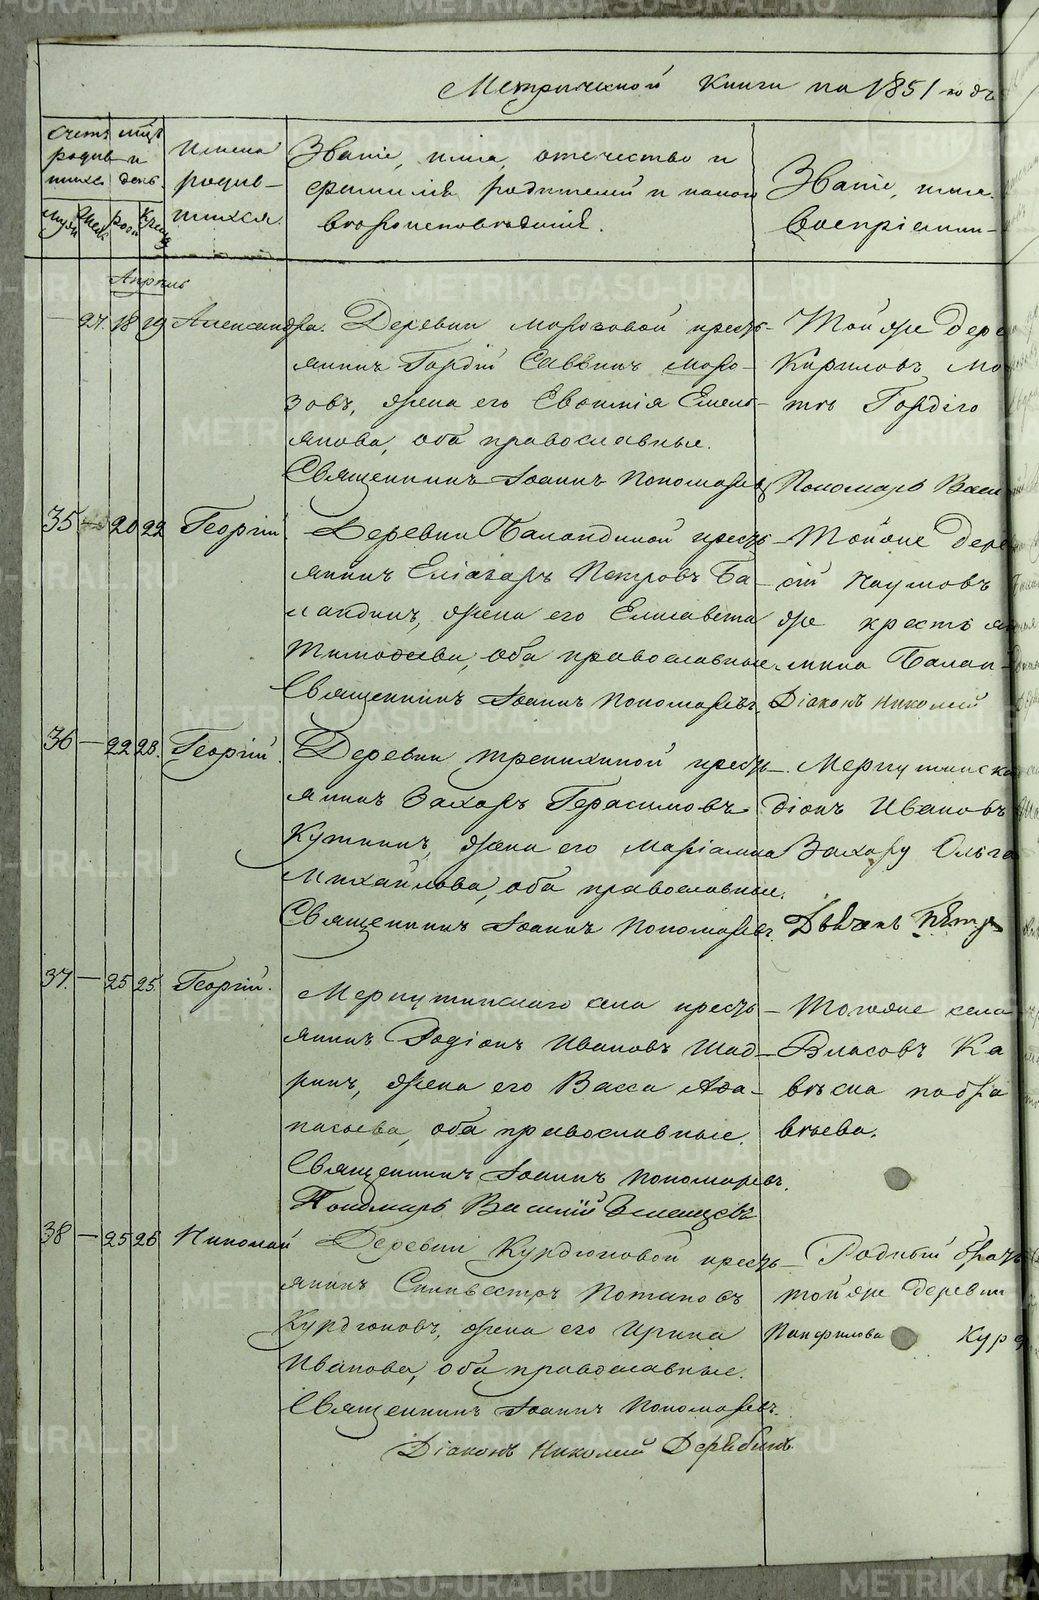 Метрической Книги на 1851 годъ
Счетъ родив-шихся
мсцъ и день
Имена родив-шихся.
Званіе, имя, отечество и фамилія родителей и какого вѣроисповѣданія.
Званіе, имя
Воспріемни-
Муж Жен рож Крещ
Апрель
— 27. 18 19 Александра.
Деревни Морозовой кресть-
янинъ Гордій Саввинъ Моро-
зовъ, жена его Евфимія Емель-
янова, оба православные.
Священникъ Іоаннъ Пономаревъ
Той же дере
Кириловъ Мо
Гордіго
Пономарь Васи
35 — 20 22 Георгій
Деревни Баландиной кресть-
янинъ Еліазаръ Петровъ Ба-
ландинъ, жена его Елисавета
Тимофеева, оба православные.
Священникъ Іоаннъ Пономаревъ.
Той же дере
сій Наумовъ
же крестьян
мина Балан-
Діаконъ Николай
36 — 22 23. Георгій.
Деревни Тренихиной кресть-
янинъ Захаръ Герасимовъ
Кузминъ, жена его Маріамна
Михайлова, оба православные.
Священникъ Іоаннъ Пономаревъ.
Меркушинска
діонъ Ивановъ
Захару Ольга
Дьячекъ Петр
37. — 25 25. Георгій.
Меркушинскаго села кресть-
янинъ Родіонъ Ивановъ Шад-
ринъ, жена его Васса Афа-
насьева, оба православные.
Священникъ Іоаннъ Пономаревъ.
Пономарь Василій
Тогоже села
Власовъ Ка
вѣсна набра
вьева.
38 — 25 26 Николай
Деревни Курдюковой кресть-
янинъ Сильвестръ Потаповъ
Курдюковъ, жена его Ирина
Иванова, оба православные.
Священникъ Іоаннъ Пономаревъ.
Діаконъ Николай Дерябинъ.
Родный братъ
той же деревни
Панфилова Курд